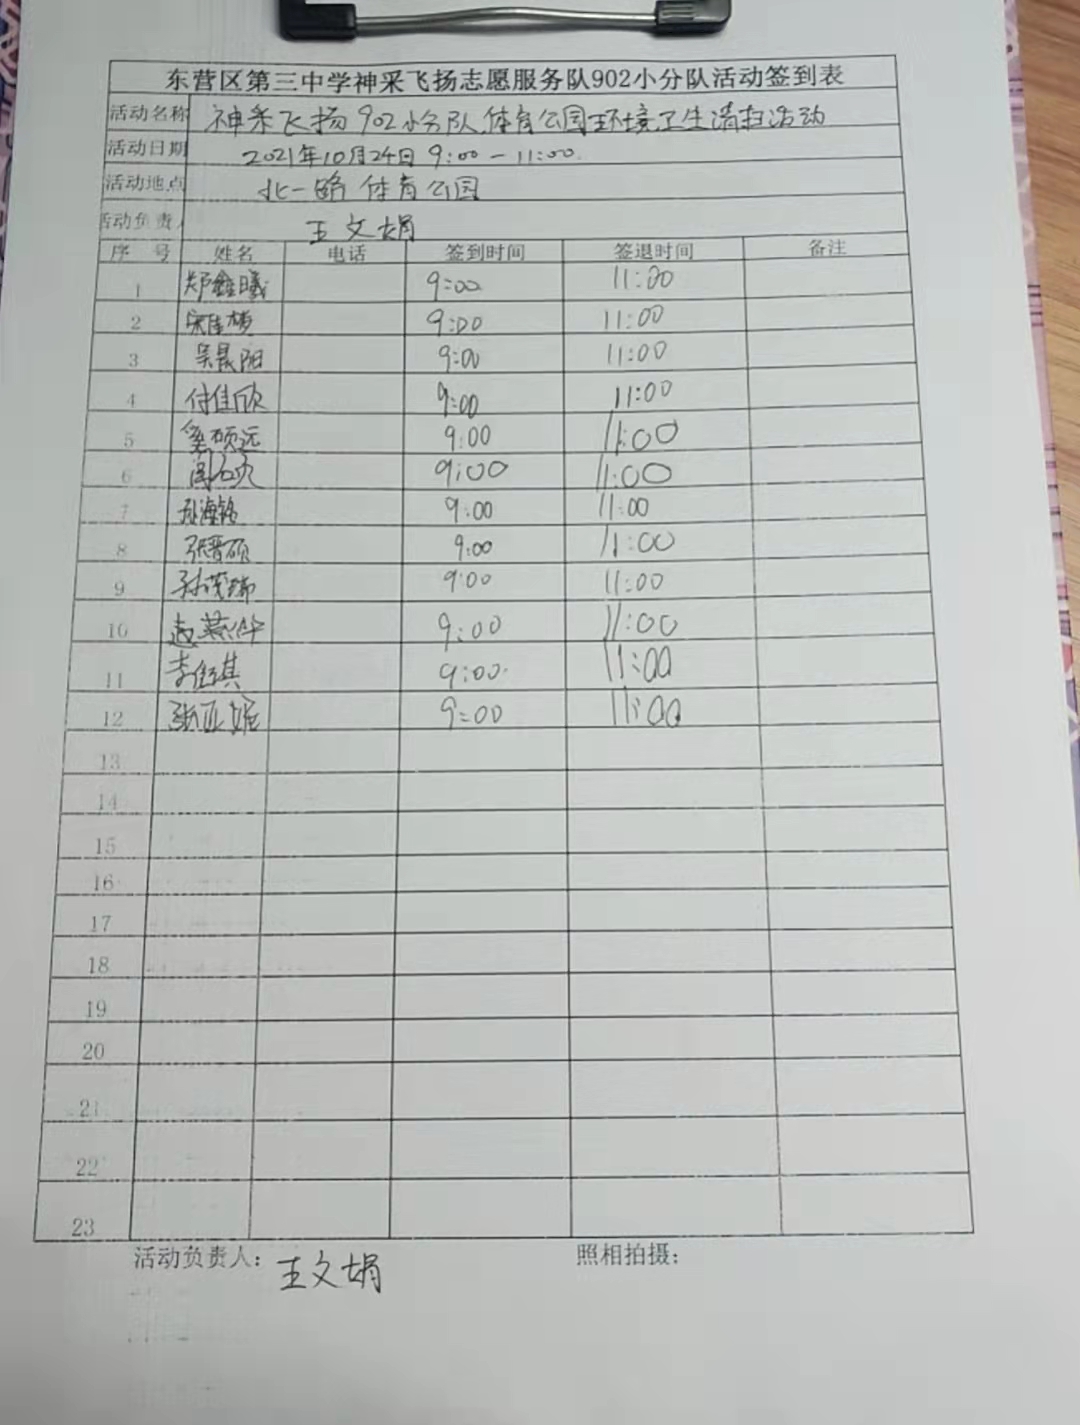 东营区第三中学神采飞扬志愿服务队902小分队活动签到表
活动名称 神采飞扬902小分队体育公园环境卫生清扫活动
活动日期 2021年10月24日 9:00-11:00
活动地点 北一路体育公园
活动负责人 王文娟
序号 姓名 电话 签到时间 签退时间 备注
1 郑鑫曦 9:00 11:00
2 9:00 11:00
3 吴晨阳 9:00 11:00
4 付佳欣 9:00 11:00
5 硕远 9:00 11:00
6 9:00 11:00
7 孙海铭 9:00 11:00
8 张晋硕 9:00 11:00
9 9:00 11:00
10 9:00 11:00
11 9:00 11:00
12 张亚妮 9:00 11:00
13
14
15
16
17
18
19
20
21
22
23
活动负责人：王文娟 照相拍摄：